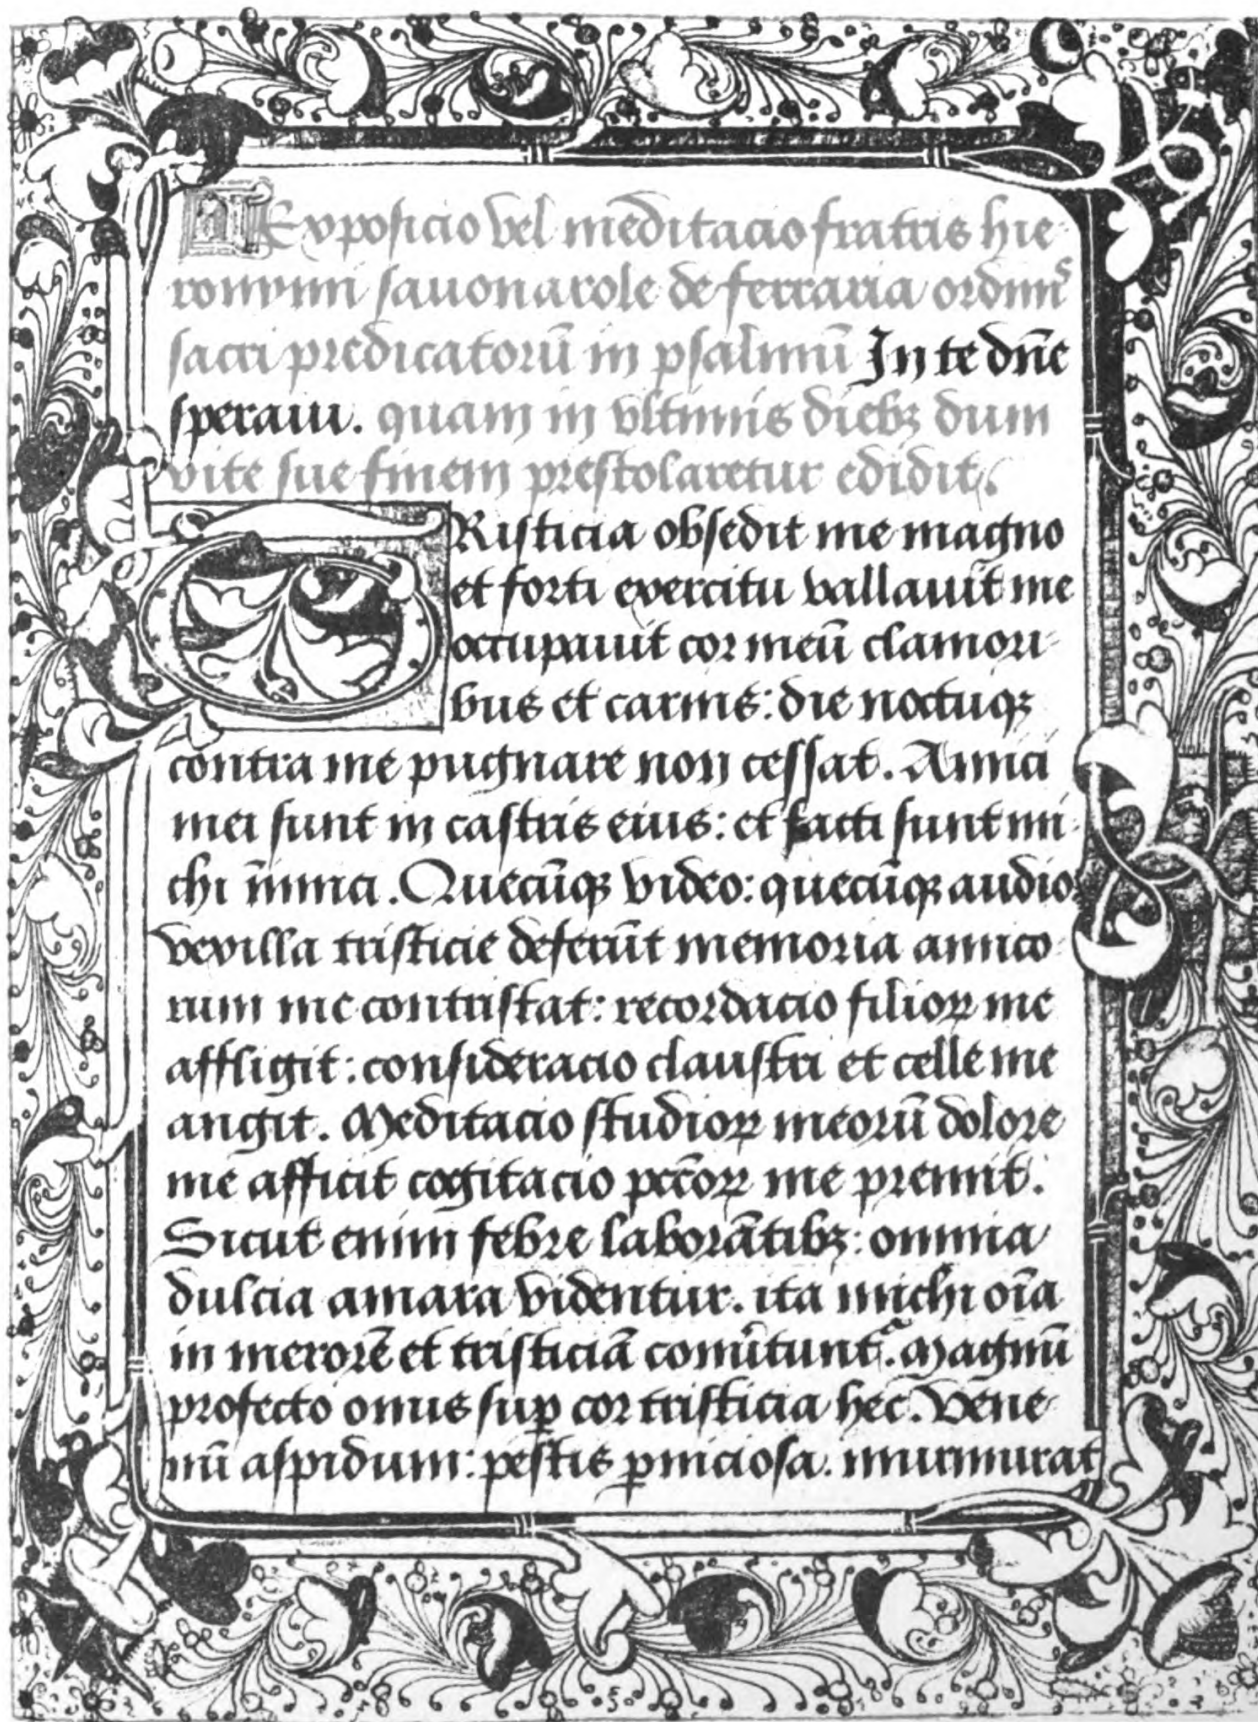 Exposicio vel meditacio fratris hie
ronymi sauonarole de ferraria ordinis
sacri predicatorū in psalmū In te dn̄e
speraui. quam in vltimis diebꝫ dum
vite sue finem prestolaretur edidit.
TRisticia obsedit me magno
et forti exercitu vallauit me
occupauit cor meū clamori
bus et carnis: die noctuqꝫ
contra me pugnare non cessat. Amici
mei sunt in castris eius: et facti sunt mi
chi īnimici. Quecūqꝫ video: quecūqꝫ audio
vexilla tristicie deferūt memoria amico
rum me contristat: recordacio filioꝝ me
affligit: consideracio claustri et celle me
angit. Meditacio studioꝝ meorū dolore
me afficit cogitacio pccōꝝ me premit.
Sicut enim febre laborātibꝫ: omnia
dulcia amara videntur. ita michi oīa
in merorē et tristiciā conūtunt᷑. Magnū
profecto onus suꝑ cor tristicia hec. Vene
nū aspidum: pestis ꝑniciosa. murmurat